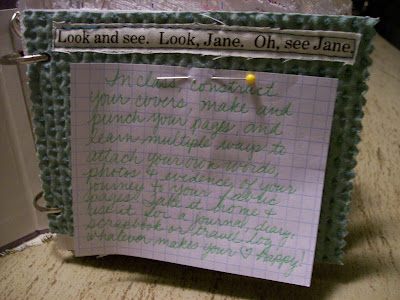 Look and see. Look, Jane. Oh, see Jane.
In class, construct
your covers, make and
punch your pages, and
learn multiple ways to
attach your own words,
photos & evidence of your
journey to your fabric
pages. Take it home &
use it for a journal, diary,
scrapbook or travel log -
whatever makes your ♡ happy!